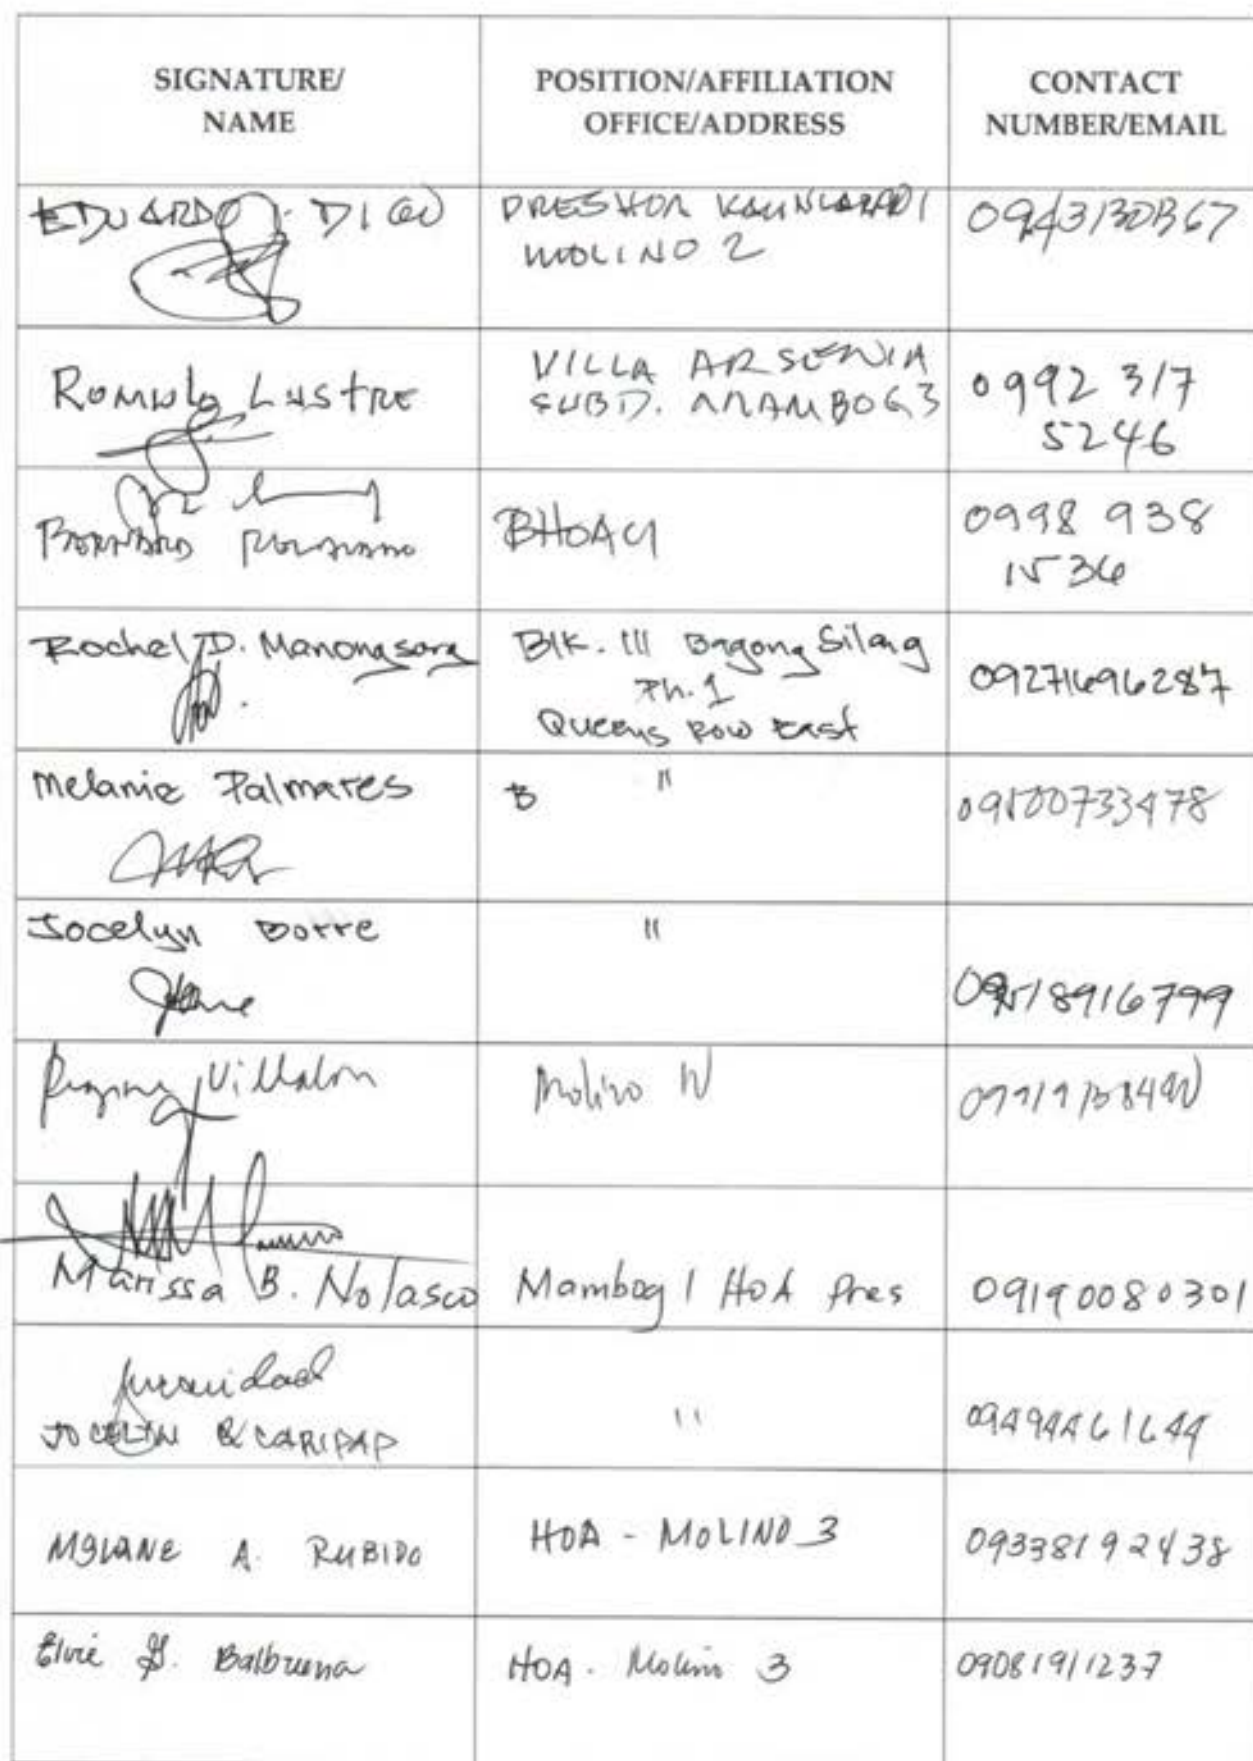 SIGNATURE/
NAME
POSITION/AFFILIATION
OFFICE/ADDRESS
CONTACT
NUMBER/EMAIL
EDUARDO
MOLINO 2
Romulo Lustre
VILLA ARSENIA
SUBD.
0992 317
5246
BERNARD
0998 938
1536
Rochel D. Manongsong
Blk. III Bagong Silang
Ph. 1
Queens Row East
09271696287
Melanie Palmares
B "
09500733478
Jocelyn Borre
"
09518916799
Villalon
Molino IV
Marissa B. Nolasco
Mambog 1 HOA Pres
09190080301
JOCELYN CARIDAD
"
09494461644
A. RUBIDO
HOA - MOLINO 3
09338192438
Elvie G. Balbuena
HOA - Molino 3
09081911237